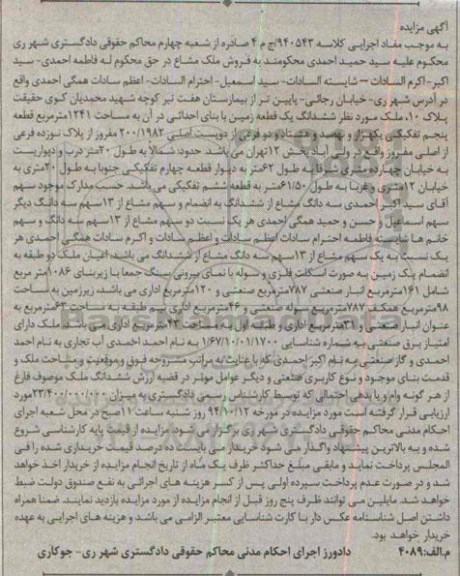 آگهی مزایده
به موجب مفاد اجرایی کلاسه ۹۴۰۵۴۳/ج م ۴ صادره از شعبه چهارم محاکم حقوقی دادگستری شهر ری
محکوم علیه سید حمید احمدی محکومند به فروش ملک مشاع در حق محکوم له فاطمه احمدی- سید
اکبر- اکرم السادات – شایسته السادات- سید اسمعیل- احترام السادات- اعظم سادات همگی احمدی واقع
در آدرس شهر ری- خیابان رجائی- پایین تر از بیمارستان هفت تیر کوچه شهید محمدیان کوی حقیقت
پلاک ۱۰، ملک مورد نظر ششدانگ یک قطعه زمین با بنای احداثی در آن به مساحت ۱۲۴۱مترمربع قطعه
پنجم تفکیکی یکهزار و نهصد و هشتاد و دو فرعی از دویست اصلی ۲۰۰/۱۹۸۲ مفروز از پلاک نوزده فرعی
از اصلی مفروز واقع در ولی آباد بخش ۱۲تهران می باشد. حدود: شمالا به طول ۲۰متر درب و دیواریست
به خیابان چهارده متری شرقا به طول ۶۲متر به دیوار قطعه چهارم تفکیکی جنوبا به طول ۲۰متری به
خیابان ۱۲متری و غربا به طول ۶۱/۵۰متر به قطعه ششم تفکیکی می باشد. حسب مدارک موجود سهم
آقای سید اکبر احمدی سه دانگ مشاع از ششدانگ به انضمام و سهم مشاع از ۱۳سهم سه دانگ دیگر
سهم اسماعیل و حسن و حمید همگی احمدی هر یک نسبت دو سهم مشاع از ۱۳سهم سه دانگ و سهم
خانم ها شایسته فاطمه احترام سادات اعظم سادات و اعظم سادات و اکرم سادات همگی احمدی هر
یک نسبت به یک سهم مشاع از ۱۳سهم سه دانگ مشاع از ششدانگ می باشد. اعیان ملک دو طبقه به
انضمام یک زمین به صورت اسکلت فلزی و سوله با نمای بیرونی سنگ جمعا با زیربنای ۱۰۸۶متر مربع
شامل ۱۶۱مترمربع انبار صنعتی ۷۸۷مترمربع صنعتی و ۱۲۰مترمربع اداری می باشد، زیرزمین به مساحت
۹۸مترمربع همکف ۷۸۷مترمربع سوله صنعتی و ۴۶مترمربع اداری نیم طبقه به مساحت ۶۳مترمربع به
عنوان انبار صنعتی و ۳۱مترمربع اداری و طبقه اول به مساحت ۴۳مترمربع اداری می باشد ملک دارای
امتیاز برق صنعتی به شماره شناسایی ۱/۶۷/۱۰/۰۱/۱۷۰۰ به نام احمد احمدی آب تجاری به نام احمد
احمدی و گاز صنعتی به نام اکبر احمدی که با عنایت به مراتب مشروحه فوق و موقعیت و مساحت ملک و
قدمت بنای موجود و نوع کاربری صنعتی و دیگر عوامل موثر در قضیه ارزش ششدانگ ملک موصوف فارغ
از هر گونه وام و یا بدهی احتمالی که توسط کارشناس رسمی دادگستری به میزان ۲۳/۴۰۰/۰۰۰/۰۰۰مورد
ارزیابی قرار گرفته است مورد مزایده در مورخه ۹۴/۱۰/۱۲ روز شنبه ساعت ۱۱صبح در محل شعبه اجرای
احکام مدنی محاکم حقوقی دادگستری شهر ری برگزار می شود. مزایده از قیمت پایه کارشناسی شروع
شده و به بالاترین پیشنهاد واگذار می شود خریدار می بایست ده درصد قیمت خریداری شده را فی
المجلس پرداخت نماید و مابقی مبلغ حداکثر ظرف یک ماه از تاریخ انجام مزایده از خریدار اخذ خواهد
شد و در صورت عدم پرداخت سپرده اولی پس از کسر هزینه های اجرائی به نفع صندوق دولت ضبط
خواهد شد. مایلین می توانند ظرف پنج روز قبل از انجام مزایده از مورد مزایده بازدید نمایند. ضمنا همراه
داشتن اصل شناسنامه عکس دار یا کارت شناسایی معتبر الزامی می باشد و هزینه های اجرایی به عهده
خریدار خواهد بود.
م.الف:۴۰۸۹ دادورز اجرای احکام مدنی محاکم حقوقی دادگستری شهر ری- جوکاری